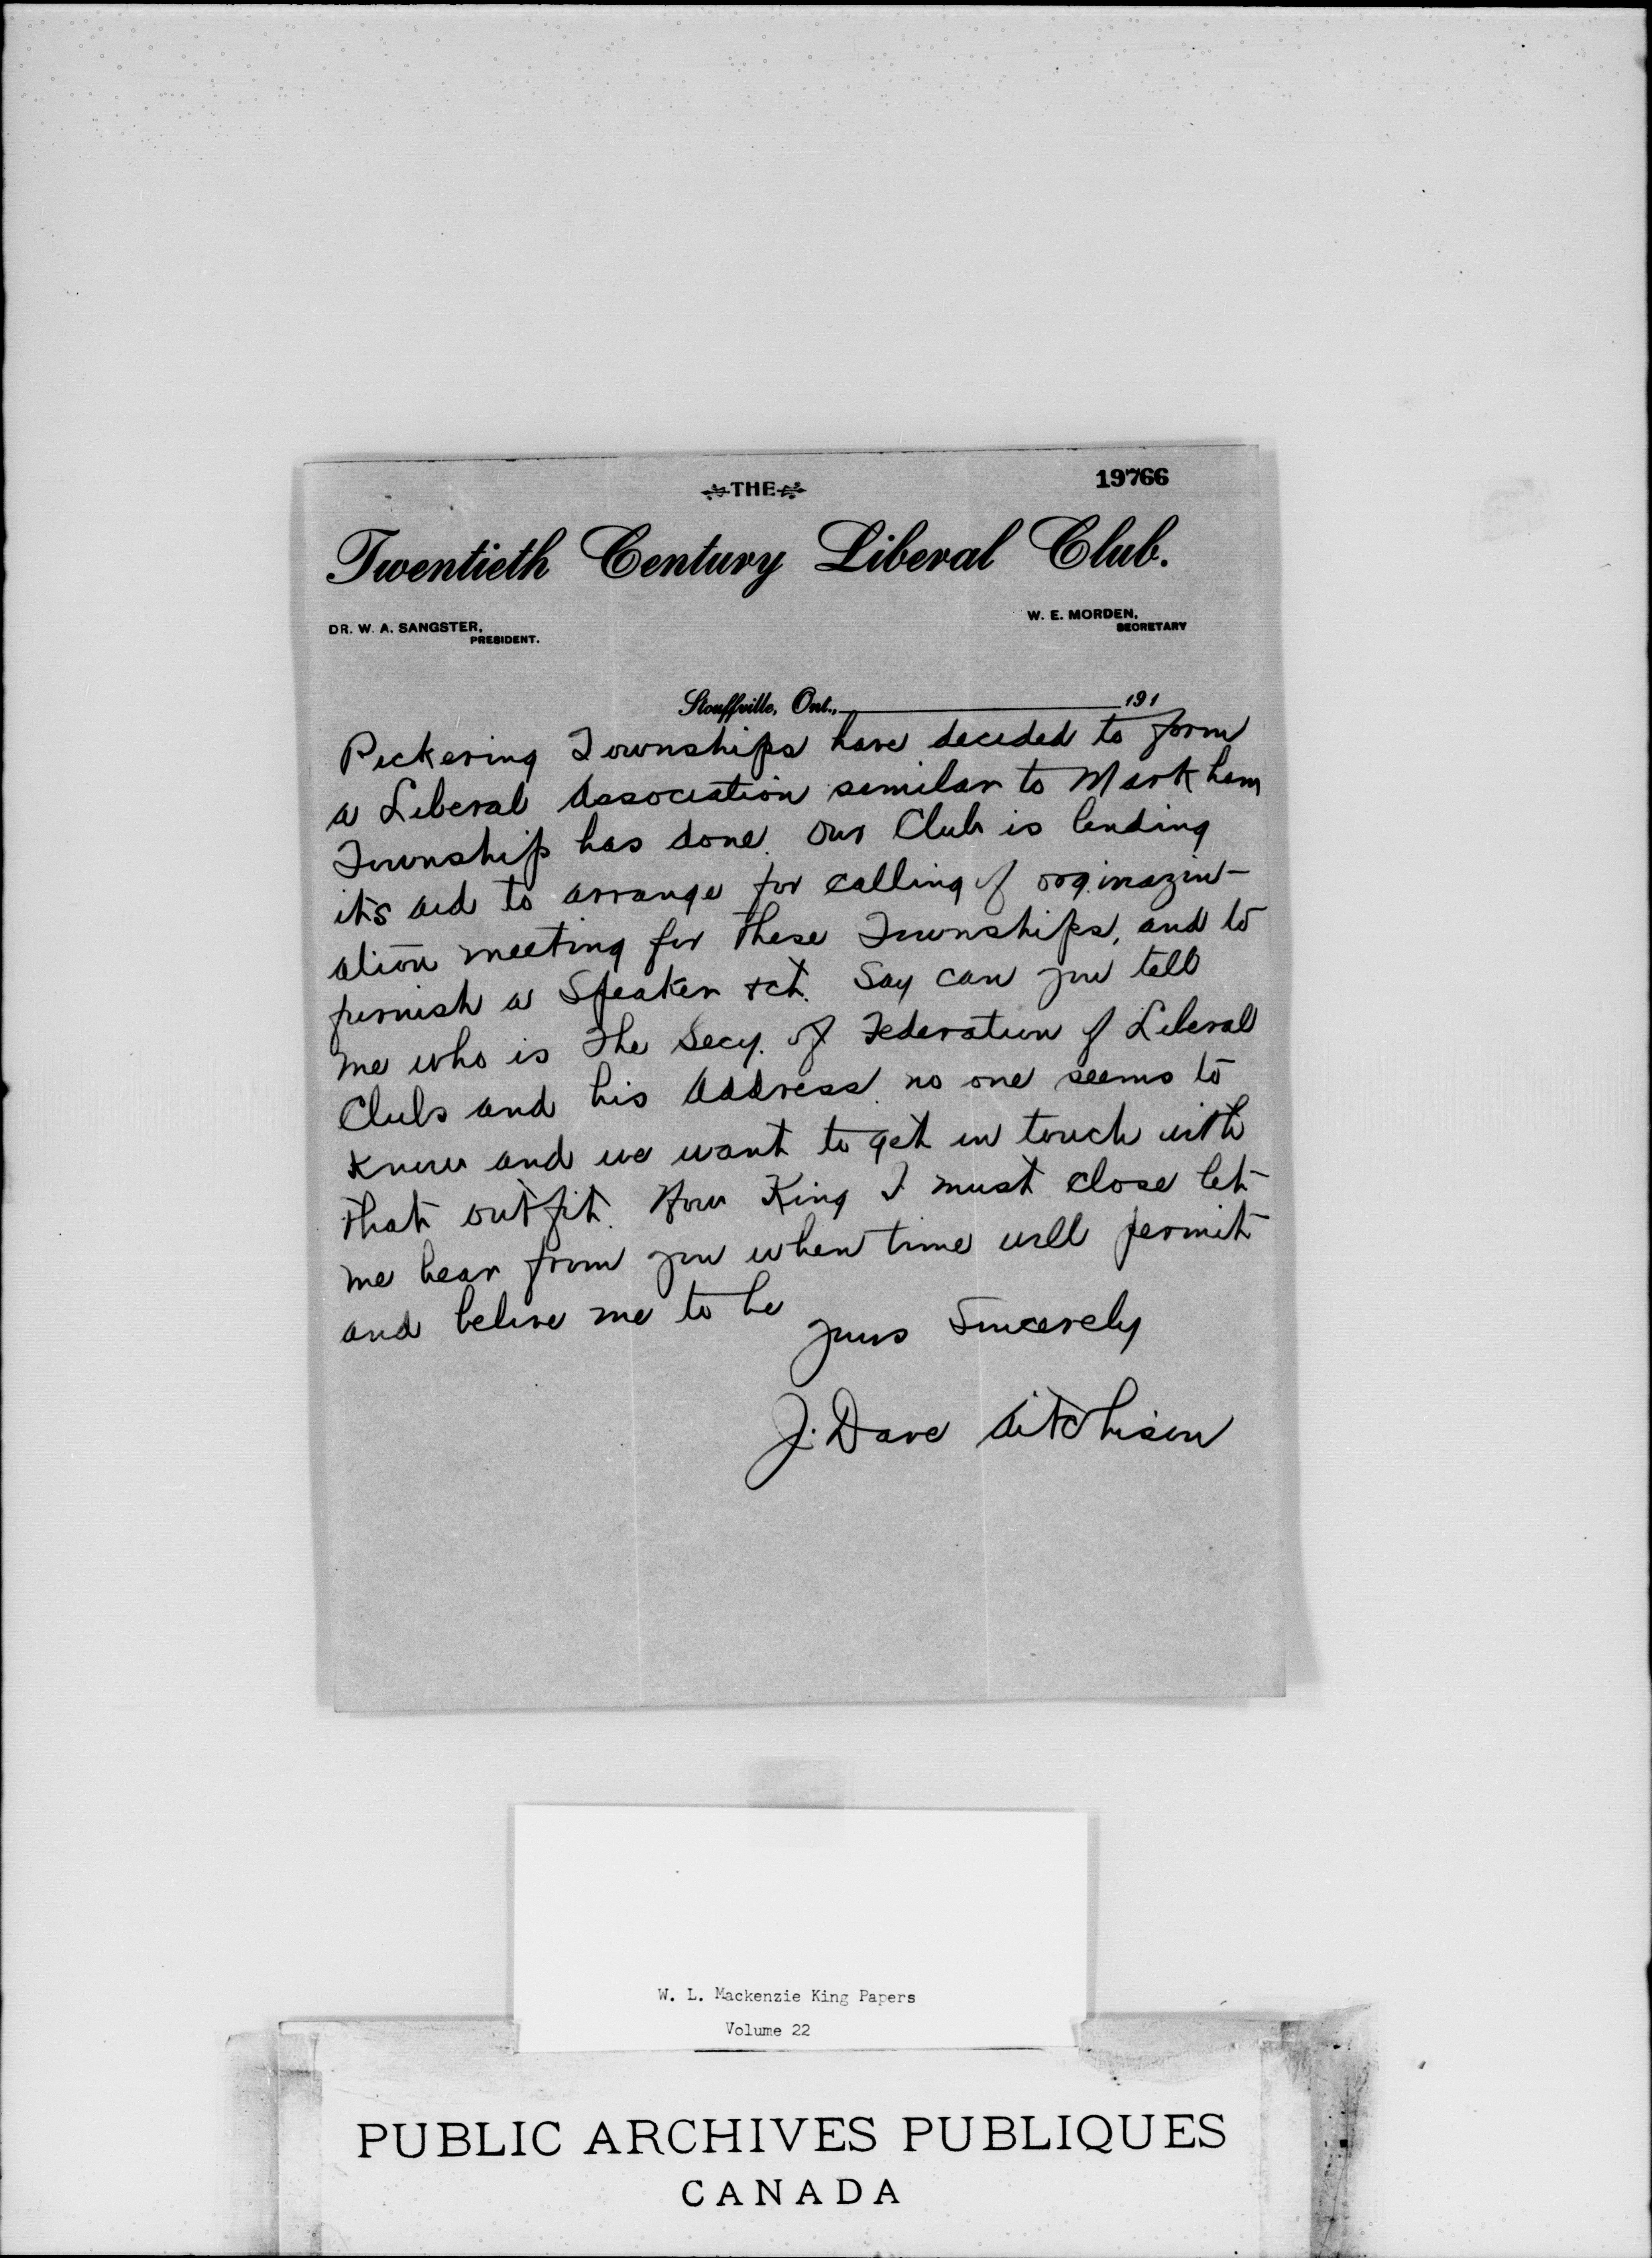 19766
THE
Twentieth Century Liberal Club.
DR. W. A. SANGSTER,
PRESIDENT.
W. E. MORDEN,
SECRETARY
Stouffville, Ont., 191
Pickering Townships have decided to form
a Liberal Association similar to Markham
Township has done. Our Club is lending
its aid to arrange for calling of orginazint-
ation meeting for these Townships, and to
furnish a Speaker &ct. Say can you tell
me who is the Secy. of Federation of Liberal
Clubs and his address. no one seems to
know and we want to get in touch with
that outfit. Now King I must close let
me hear from you when time will permit
and belive me to be
yours Sincerely
J. Dave Aitchison
W. L. Mackenzie King Papers
Volume 22
PUBLIC ARCHIVES PUBLIQUES
CANADA